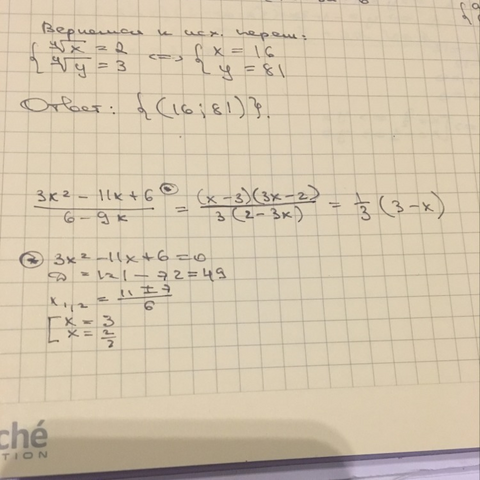 Вернемся к исх. перем:
{ ⁴√x = 2 <=> { x = 16
{ ⁴√y = 3 { y = 81
Ответ: {(16; 81)}.
(3x² - 11x + 6) / (6 - 9x) = (x - 3)(3x - 2) / 3(2 - 3x) = 1/3 (3 - x)
3x² - 11x + 6 = 0
D = 121 - 72 = 49
x₁,₂ = (11 ± 7) / 6
[ x = 3
[ x = 2/3
ché
TION